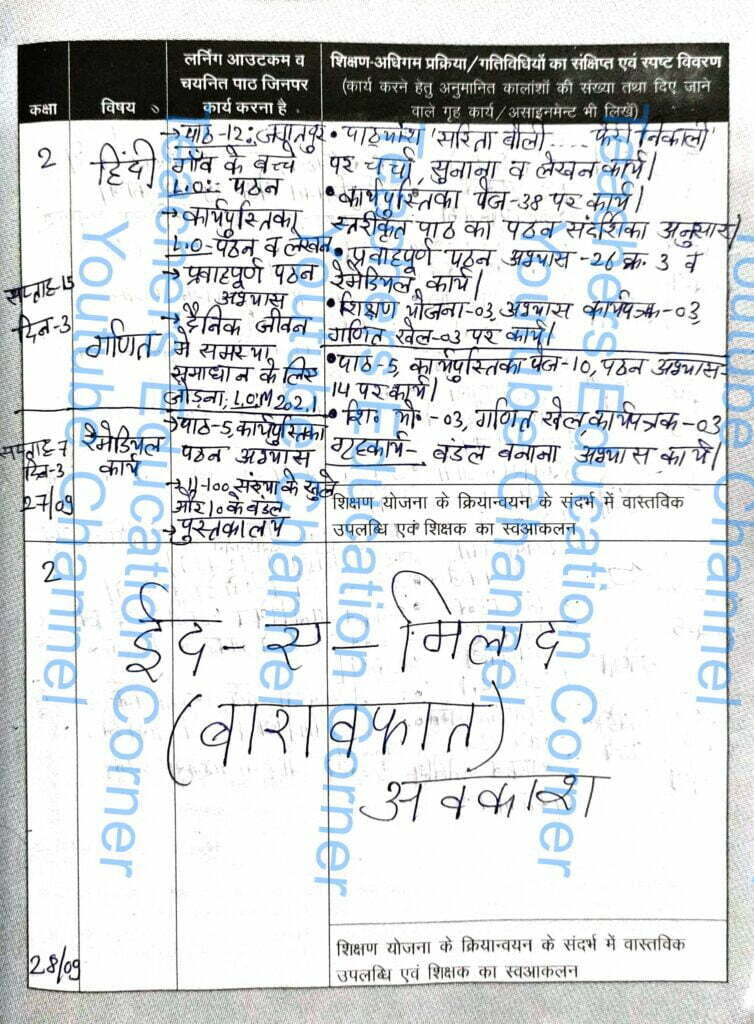 कक्षा
विषय
लर्निंग आउटकम व
चयनित पाठ जिनपर
कार्य करना है
शिक्षण-अधिगम प्रक्रिया/गतिविधियों का संक्षिप्त एवं स्पष्ट विवरण
(कार्य करने हेतु अनुमानित कालांशों की संख्या तथा दिए जाने
वाले गृह कार्य/असाइनमेन्ट भी लिखें)
2
सप्ताह-15
दिन-3
हिंदी
गणित
→ पाठ-12:
गाँव के बच्चे
L.O:- पठन
→ कार्यपुस्तिका
L.O-पठन व लेखन
→ प्रवाहपूर्ण पठन
अभ्यास
→ दैनिक जीवन
में समस्या
समाधान के लिए
जोड़ना, L.O:M202.1
• पाठ्यांश 'सरिता बोली ..... निकाली'
पर चर्चा, सुनाना व लेखन कार्य।
• कार्यपुस्तिका पेज-38 पर कार्य।
स्तरीकृत पाठ का पठन संदर्शिका अनुसार।
• प्रवाहपूर्ण पठन अभ्यास-26 क्र. 3 व
रेमेडियल कार्य।
• शिक्षण योजना-03, अभ्यास कार्यपत्रक-03,
गणित खेल-03 पर कार्य।
सप्ताह-7
दिन-3
27/09
रेमेडियल
कार्य
→ पाठ-5, कार्यपुस्तिका
पठन अभ्यास
→ 11-100 संख्या के खुले
और 10 के बंडल
→ पुस्तकालय
• पाठ-5, कार्यपुस्तिका पेज-10, पठन अभ्यास-
14 पर कार्य।
• शि० यो० -03, गणित खेल, कार्यपत्रक-03
गृहकार्य- बंडल बनाना अभ्यास कार्य।
शिक्षण योजना के क्रियान्वयन के संदर्भ में वास्तविक
उपलब्धि एवं शिक्षक का स्वआकलन
2
ईद-ए-मिलाद
(बारावफात)
अवकाश
28/09
शिक्षण योजना के क्रियान्वयन के संदर्भ में वास्तविक
उपलब्धि एवं शिक्षक का स्वआकलन
Teachers Education Corner
Youtube Channel
Teachers Education Corner
Youtube Channel